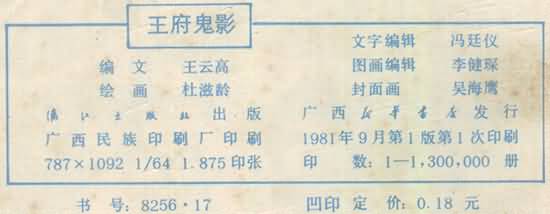 王府鬼影
编文 王云高
绘画 杜滋龄
漓江出版社出版
广西民族印刷厂印刷
787×1092 1/64 1.875印张
文字编辑 冯廷仪
图画编辑 李健琛
封面画 吴海鹰
广西新华书店发行
1981年9月第1版第1次印刷
印数:1—1,300,000 册
书号:8256·17 凹印 定价:0.18 元